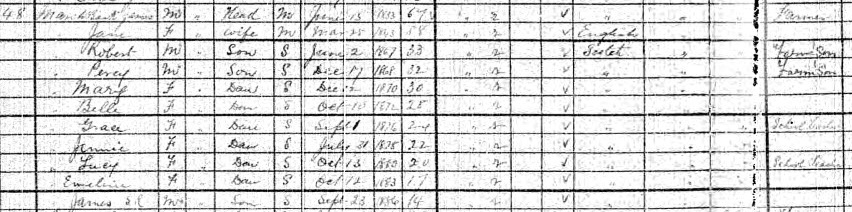 48 James M " Head M June 13 1833 67 " r ✓ " " Farmer
Jane F " Wife M Mar 25 58 " r ✓ English " "
" Robert M " Son S June 2 1867 33 " r ✓ Scotch " " Farm Son
" Percy M " Son S Dec 17 1868 32 " r ✓ " " Farm Son
" Mary F " Dau S Dec 12 1870 30 " r ✓ " "
" Belle F " Dau S Oct 10 1872 28 " r ✓ " "
" Grace F " Dau S Sept 1 1876 24 " r ✓ " " School Teacher
" Jennie F " Dau S July 31 1878 22 " r ✓ " "
" Lucy F " Dau S Oct 13 1880 20 " r ✓ " " School Teacher
Emeline F " Dau S Oct 12 1883 17 " r ✓ " "
James M " Son S Sept 23 1886 14 " r ✓ " "